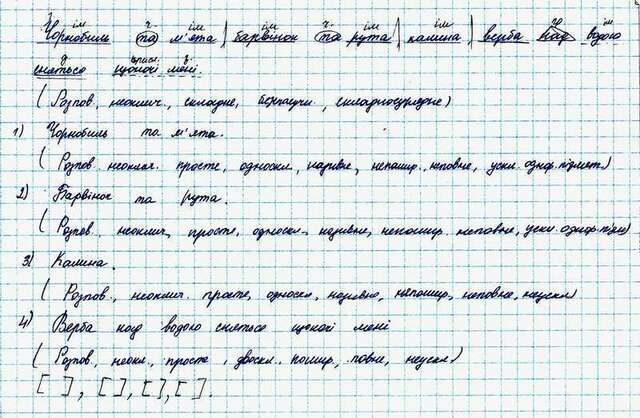 ім ч. ім ім ч. ім ім ім пр ім
Чорнобиль та м'ята, барвінок та рута, калина, верба над водою
д. присл. з.
сняться щоночі мені.
(Розпов., неоклич., складне, безспол., складносурядне)
1) Чорнобиль та м'ята.
(Розпов. неоклич. просте, односкл., називне, непошир., неповне, ускл. однор. підмет.)
2) Барвінок та рута.
(Розпов., неоклич., просте, односкл., називне, непошир. неповне, ускл. однор. підм)
3) Калина.
(Розпов., неоклич. просте, односкл., називне, непошир., неповне, неускл)
4) Верба над водою сняться щоночі мені
(Розпов, неокл., просте, двоскл., пошир., повне, неускл)
[ ], [ ], [ ], [ ].